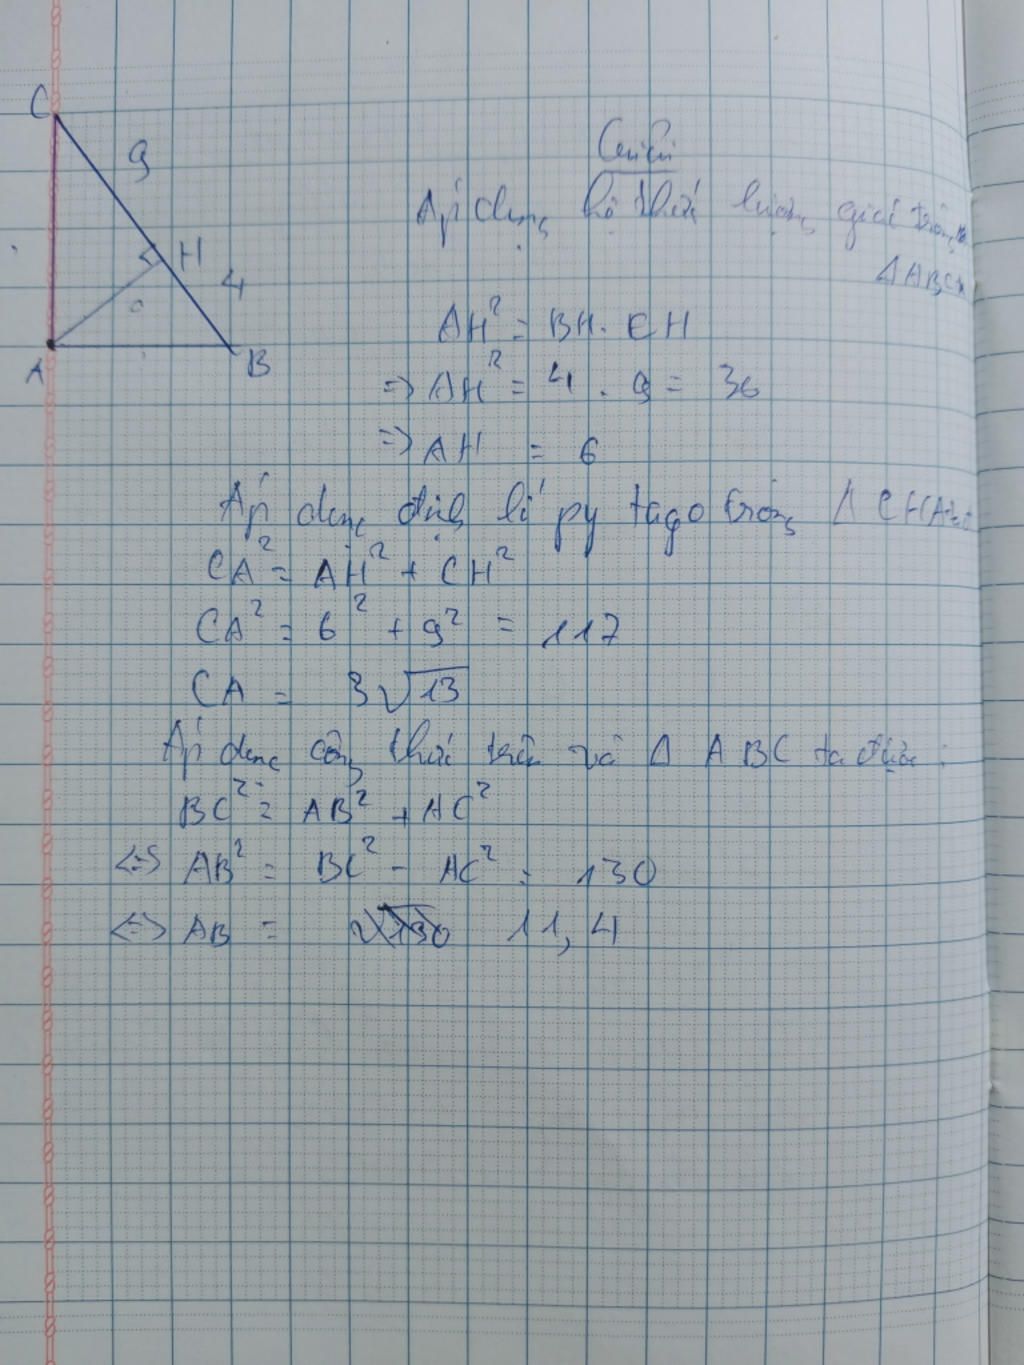 C
9
H
4
A
B
Giải
Áp dụng hệ thức lượng giác trong
Δ ABC
AH² = BH . CH
=> AH² = 4 . 9 = 36
=> AH = 6
Áp dụng định lí py tago trong Δ CHA
CA² = AH² + CH²
CA² = 6² + 9² = 117
CA = 3√13
Áp dụng công thức trên và Δ ABC ta được :
BC² = AB² + AC²
<=> AB² = BC² - AC² = 130
<=> AB = 11,4